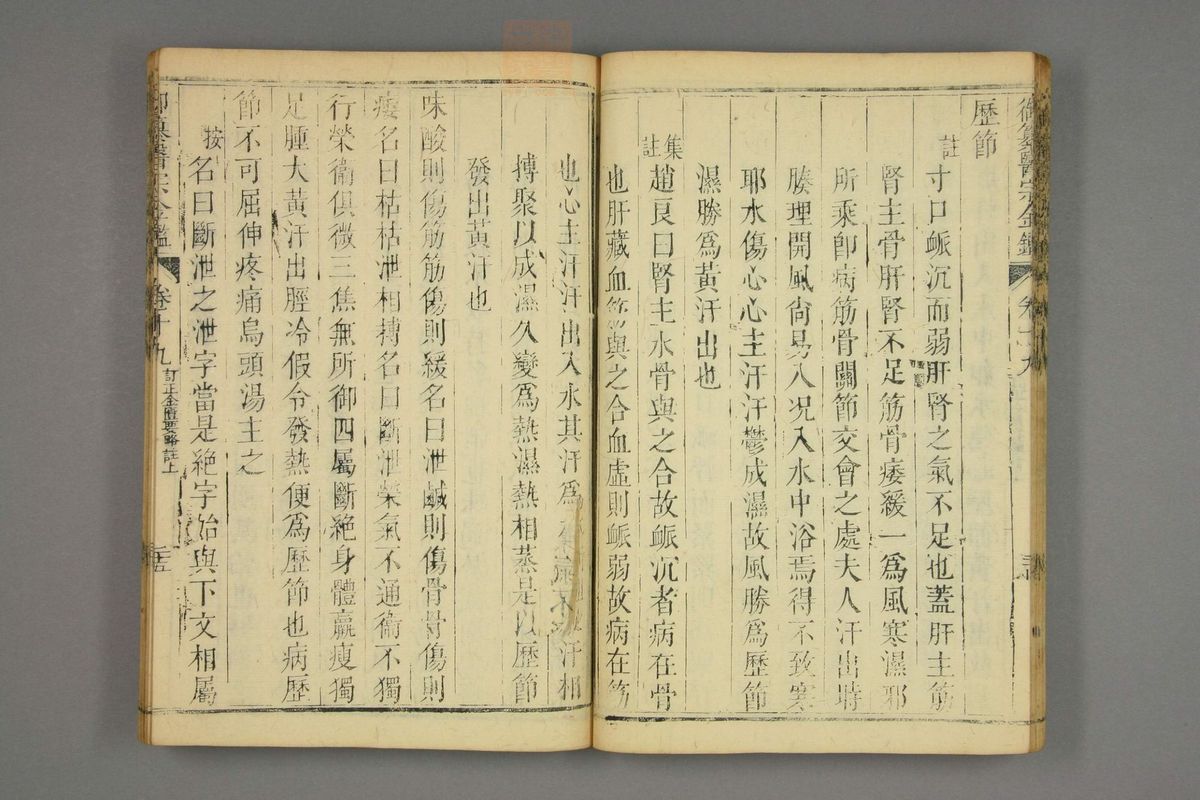 御纂醫宗金鑑 卷十九
歷節
註 寸口𧖴沉而弱肝腎之氣不足也蓋肝主筋
腎主骨肝腎不足筋骨痿緩一爲風寒濕邪
所乘卽病筋骨關節交會之處夫人汗出時
腠理開風尙易入况入水中浴焉得不致寒
耶水傷心心主汗汗鬱成濕故風勝爲歷節
濕勝爲黃汗出也
集註 趙良曰腎主水骨與之合故𧖴沉者病在骨
也肝藏血筋與之合血虛則𧖴弱故病在筋
也心主汗汗出入水其汗爲 汗相
搏聚以成濕久變爲熱濕熱相蒸是以歷節
發出黃汗也
味酸則傷筋筋傷則緩名曰泄鹹則傷骨骨傷則
痿名曰枯枯泄相搏名曰斷泄榮氣不通衞不獨
行榮衞俱微三焦無所御四屬斷絕身體羸瘦獨
足腫大黃汗出脛冷假令發熱便爲歷節也病歷
節不可屈伸疼痛烏頭湯主之
按 名曰斷泄之泄字當是絕字始與下文相屬
御纂醫宗金鑑 卷十九 訂正金匱要略註上 二五